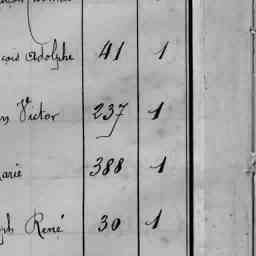 Adolphe 41 1
Victor 237 1
arie 388 1
ph René 30 1